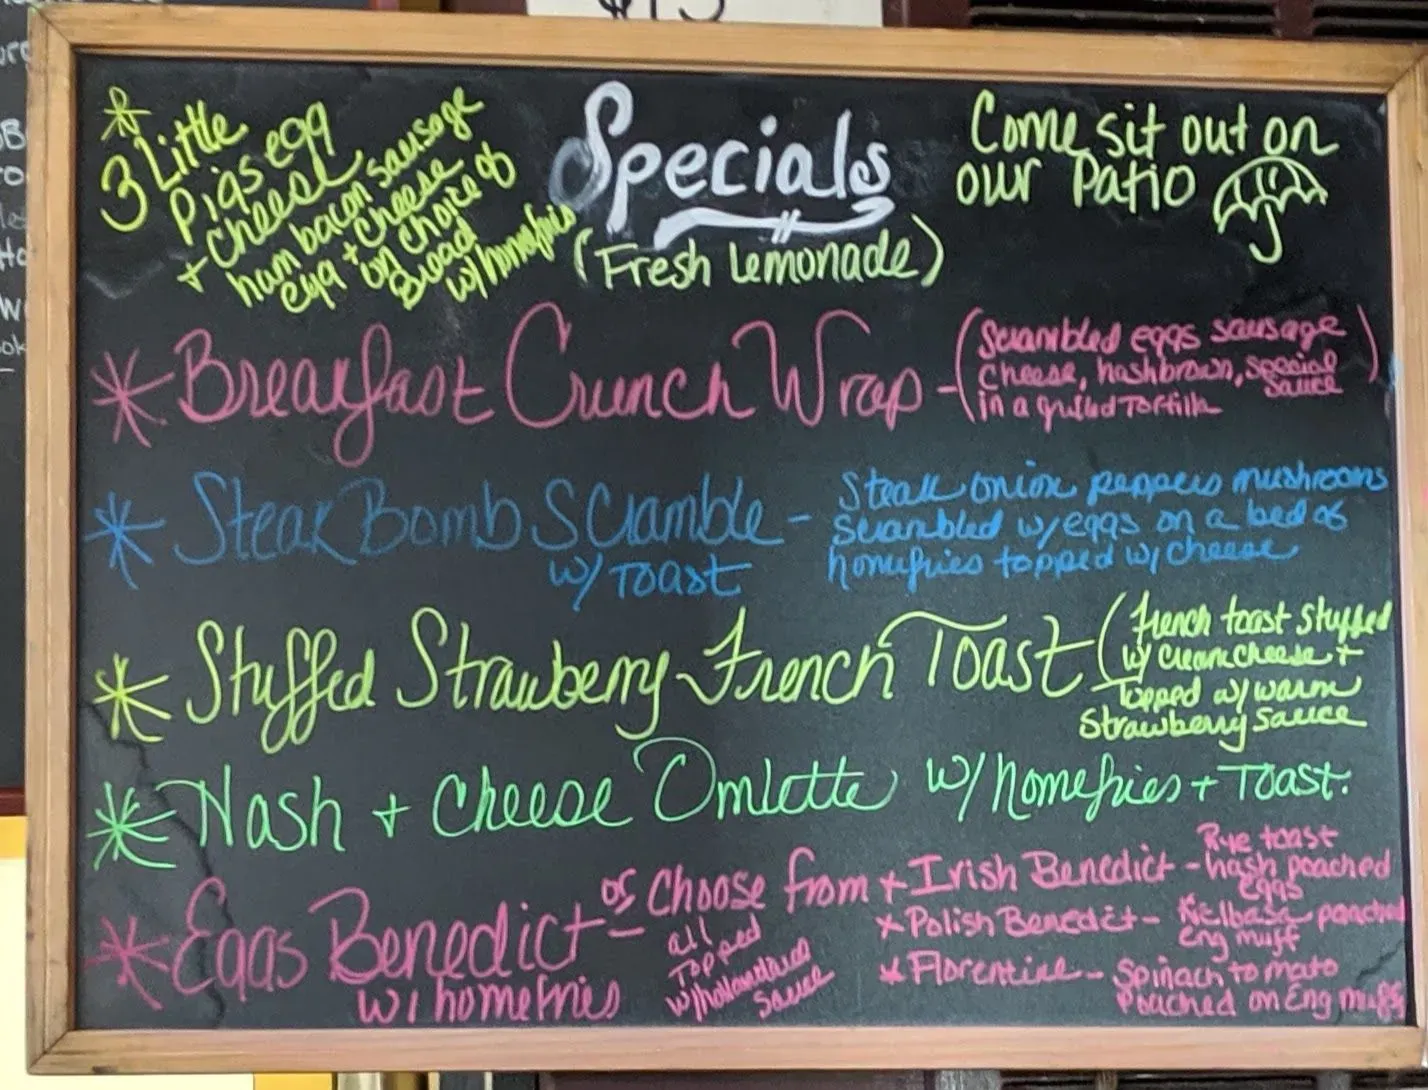 $15
3 Little
Pigs egg
+ cheese
ham bacon sausage
egg + cheese
on choice of
Bread
w/homefries
Specials
(Fresh Lemonade)
Come sit out on
our Patio
* Breakfast Crunch Wrap - (Scrambled eggs sausage
cheese, hashbrown, special
sauce)
in a grilled Tortilla
* Steak Bomb Scramble - Steak onion peppers mushrooms
scrambled w/eggs on a bed of
homefries topped w/cheese
w/ Toast
* Stuffed Strawberry French Toast (French toast stuffed
w/ creamcheese +
Topped w/ warm
Strawberry Sauce
* Hash + Cheese Omlette w/homefries + Toast.
* Eggs Benedict - or Choose from
w/homefries
all
Topped
w/hollandaise
Sauce
* Irish Benedict - Rye toast
hash poached
eggs
* Polish Benedict - Kielbasa poached
Eng muff
* Florentine - Spinach tomato
Poached on Eng muff